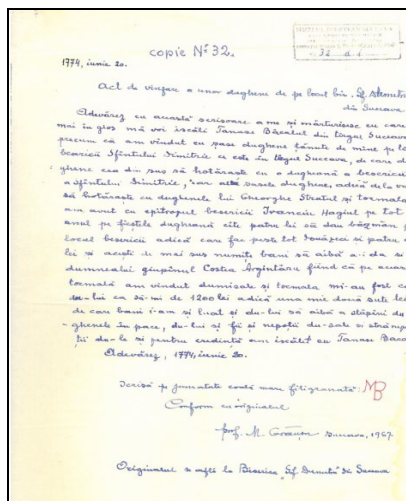 copie Nº 32.
1774, iunie 20.
Act de vînzare a unor dughene de pe locul bis. Sf. Dumitru
din Suceava
Adevărez cu această scrisoare a me și mărturiesc cu care
mai în gios mă voi iscăli Tanase Băcalul din tîrgul Suceava
precum că am vîndut cu șase dughene făcute de mine pe lo
besearicii Sfîntului Dimitrie ce este în tîrgul Suceava, de care du
ghene cea din sus să hotărăște cu o dugheană a besericii
a sfîntului Dimitrie, iar alte șasele dughene, adică de la va
să hotărăște cu dughenele lui Gheorghe Stratul și tocmala
am avut cu epitropul besericii Ivanciu Hagiul pe tot
anul pe fieștele dugheană cîte patru lei să dau bezmăn p
locul besericii adică care fac peste tot douăzeci și patru d
lei și acești de mai sus numite bani să aibă a-i da și
dumnealui giupînul Costea Argintaru fiind că pe aceas
tocmală am vîndut dumisale și tocmala mi-au fost cu
du-lui ca să-mi de 1200 lei adică una mie două sute lei
de care bani i-am și luat și du-lui să aibă a stăpîni du
-ghenele în pace, du-lui și fii și nepoții du-sale și strănepo
ții du-le și pentru credință am iscălit eu Tanase Băca
Adevărez, 1774, iunie 20.
Scrisă pe jumătate coală mare filigranată: MB
Conform cu originalul
prof. M. Suceava, 1967
Originalul se află la Biserica Sf. Dumitru din Suceava